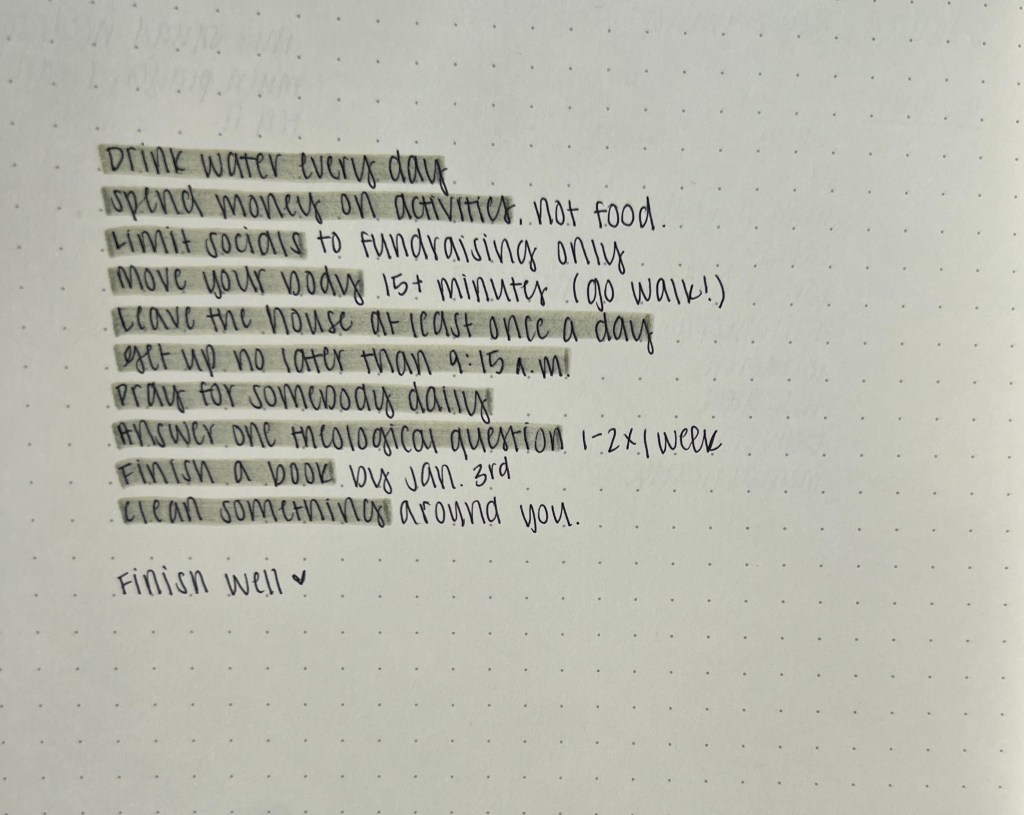 Drink water every day
spend money on activities, not food.
Limit socials to fundraising only
move your body 15+ minutes (go walk!)
Leave the house at least once a day
get up no later than 9:15 a.m!
pray for somebody daily
Answer one theological question 1-2x/week
Finish a book by Jan. 3rd
clean something around you.
Finish well ♥